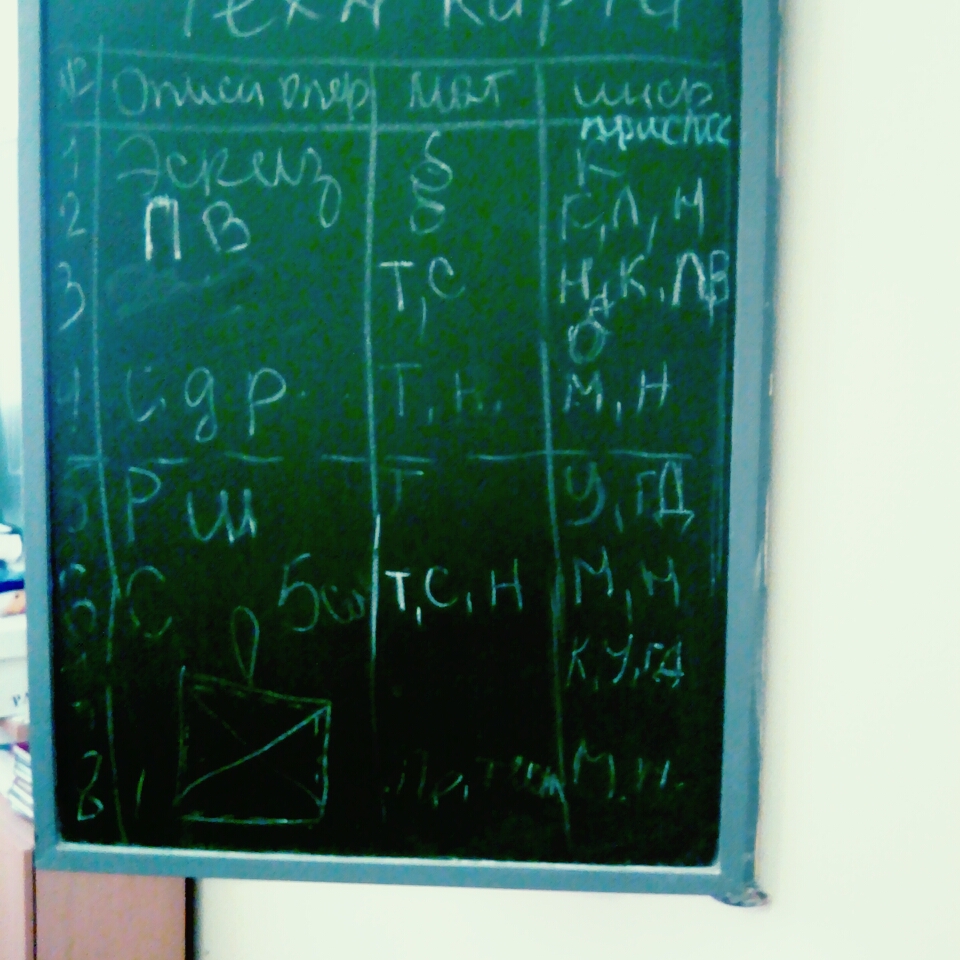 Техн карта
№ Описа опер мат инср
приспос
1 Эскиз б К
2 ПВ б К, Л, М
3 Т, С Н, К, ЛВ
О
4 С д р Т, н, М, Н
5 Р ш Т У, ГД
6 С 5см Т, С, Н М, м
К, У, ГД
7
8 М, н.